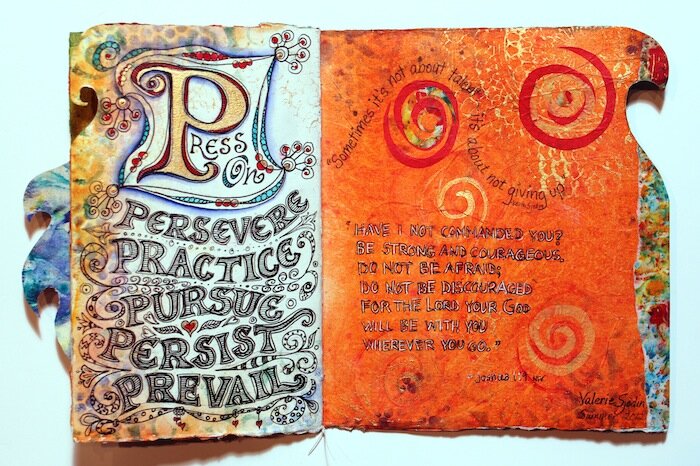 Press
On
PERSEVERE
PRACTICE
PURSUE
PERSIST
PREVAIL
"Sometimes it's not about talent, it's about not giving up
"HAVE I NOT COMMANDED YOU?
BE STRONG AND COURAGEOUS.
DO NOT BE AFRAID;
DO NOT BE DISCOURAGED
FOR THE LORD YOUR GOD
WILL BE WITH YOU
WHEREVER YOU GO."
- Joshua 1:9 NIV
Valerie Sjodin